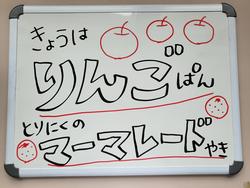 きょうは
りんごぱん
とりにくの
マーマレードやき